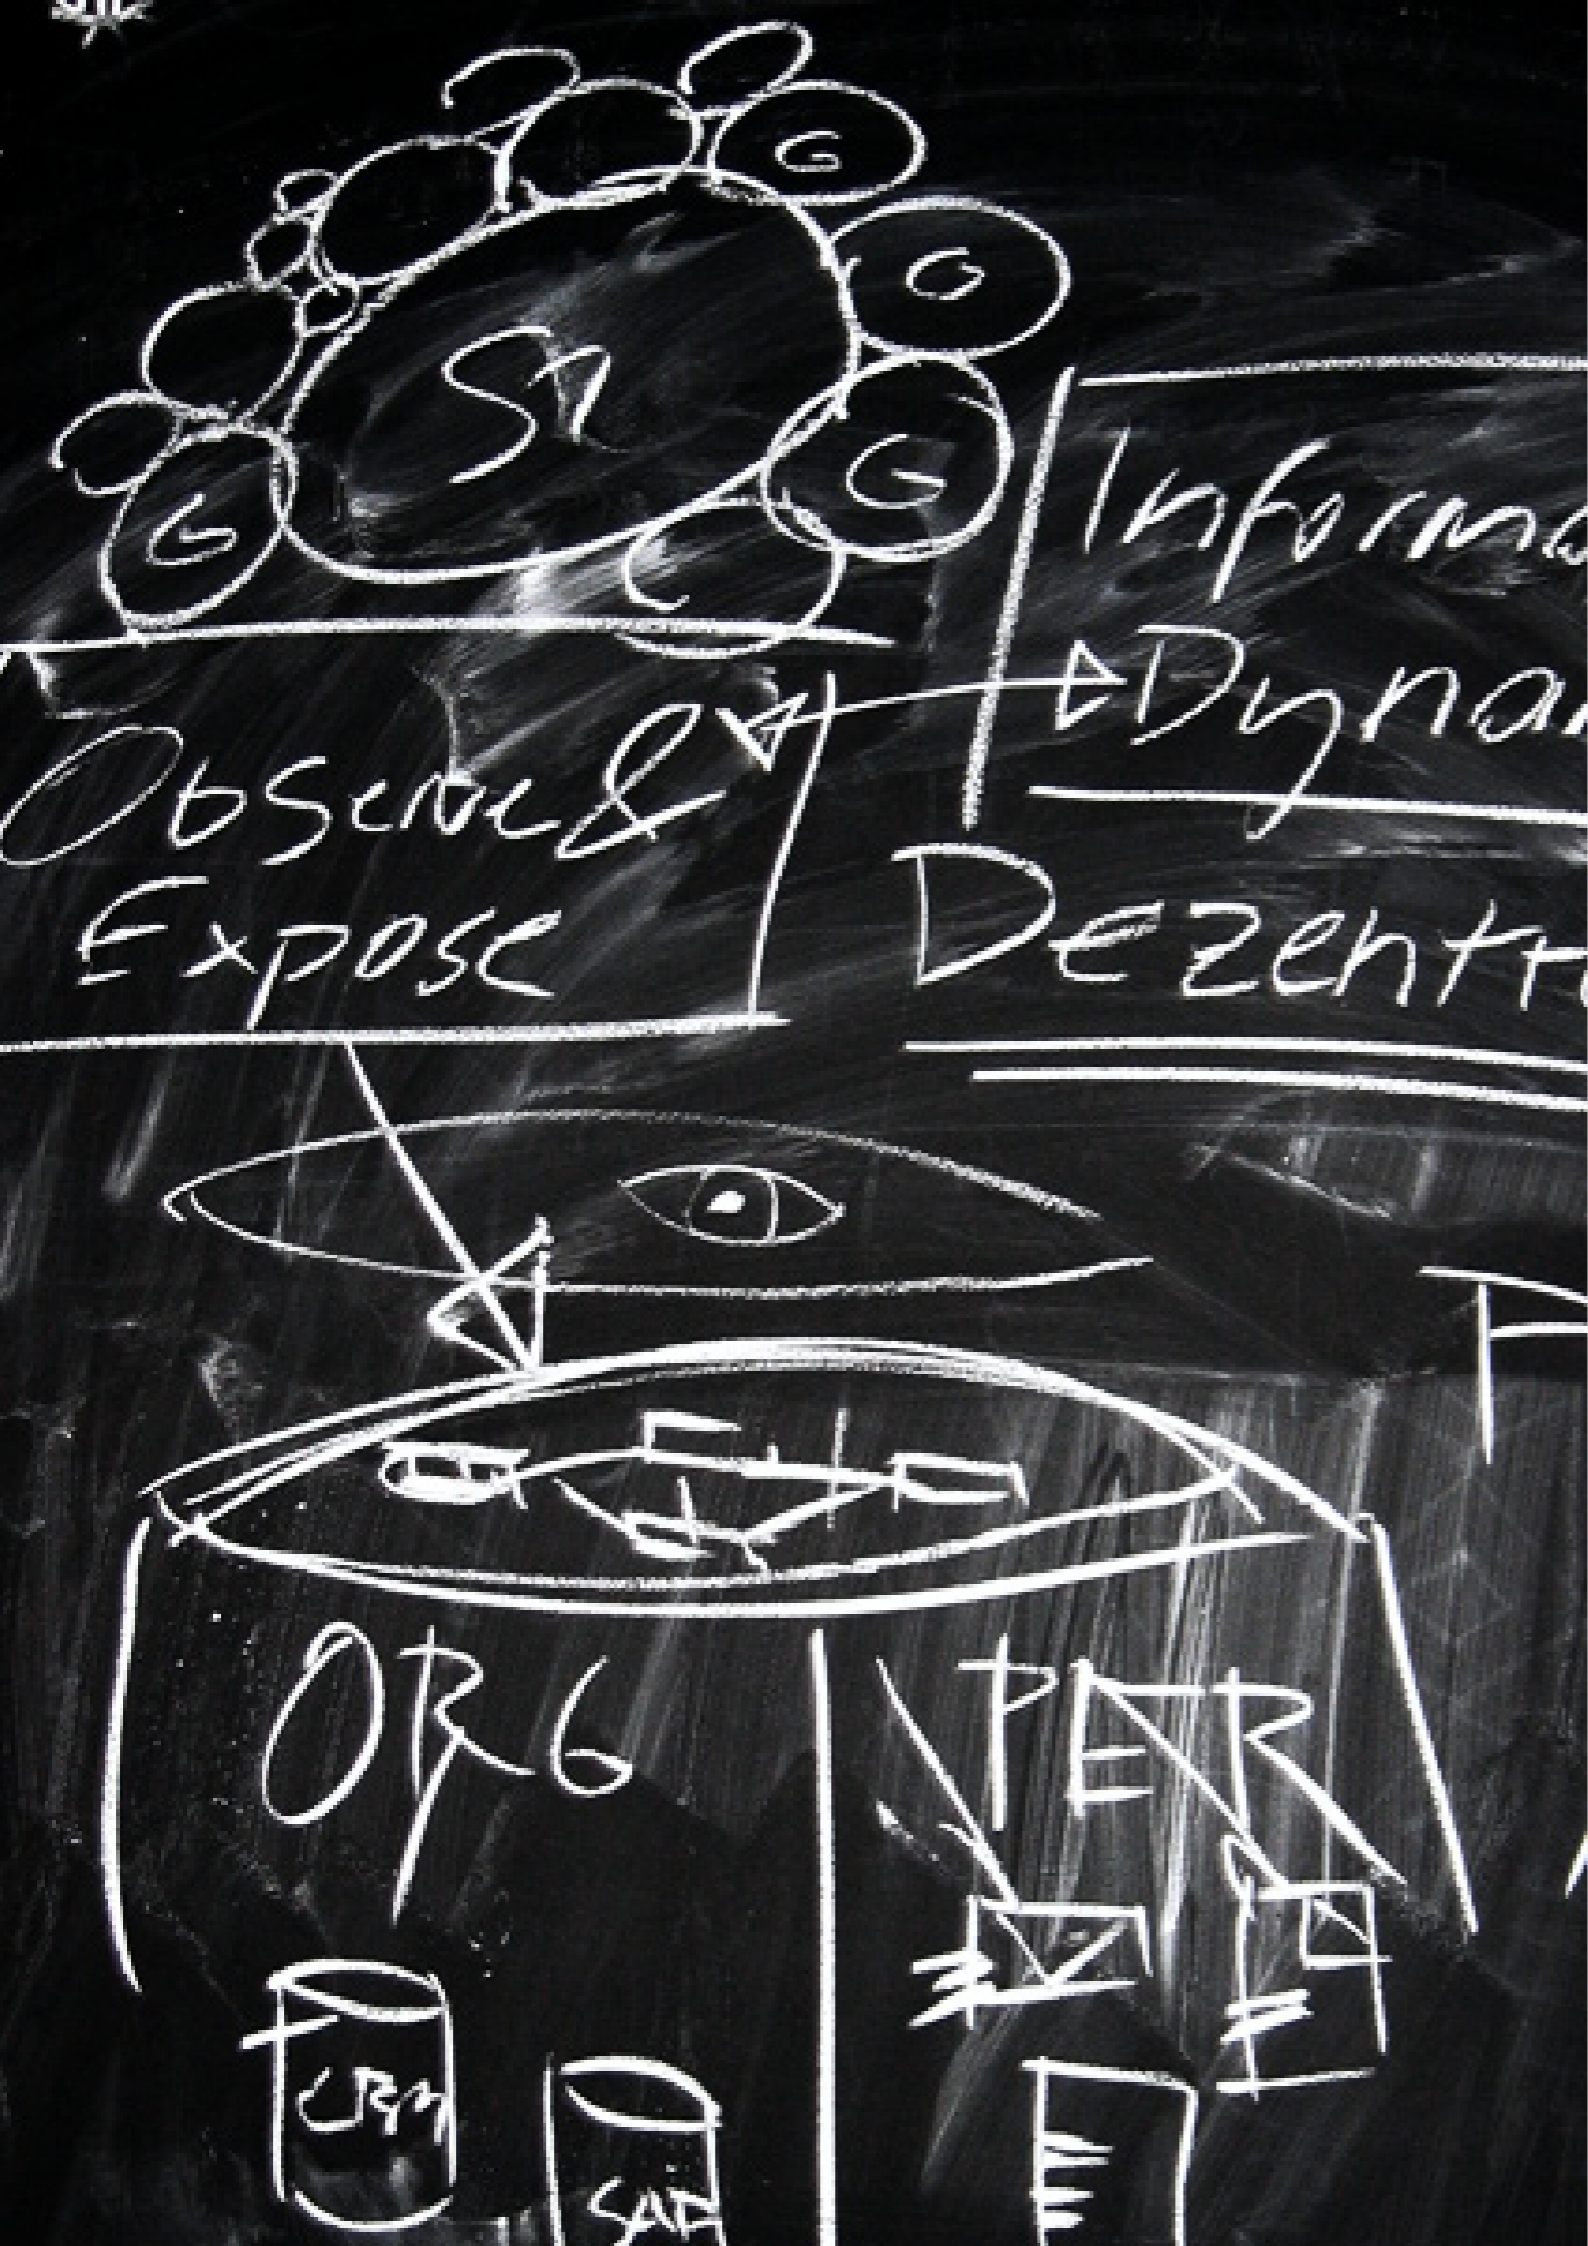 G
G
G
G
Informa
Dynam
Observe &
Expose
Dezentr
ORG
PER
CRM
SAP